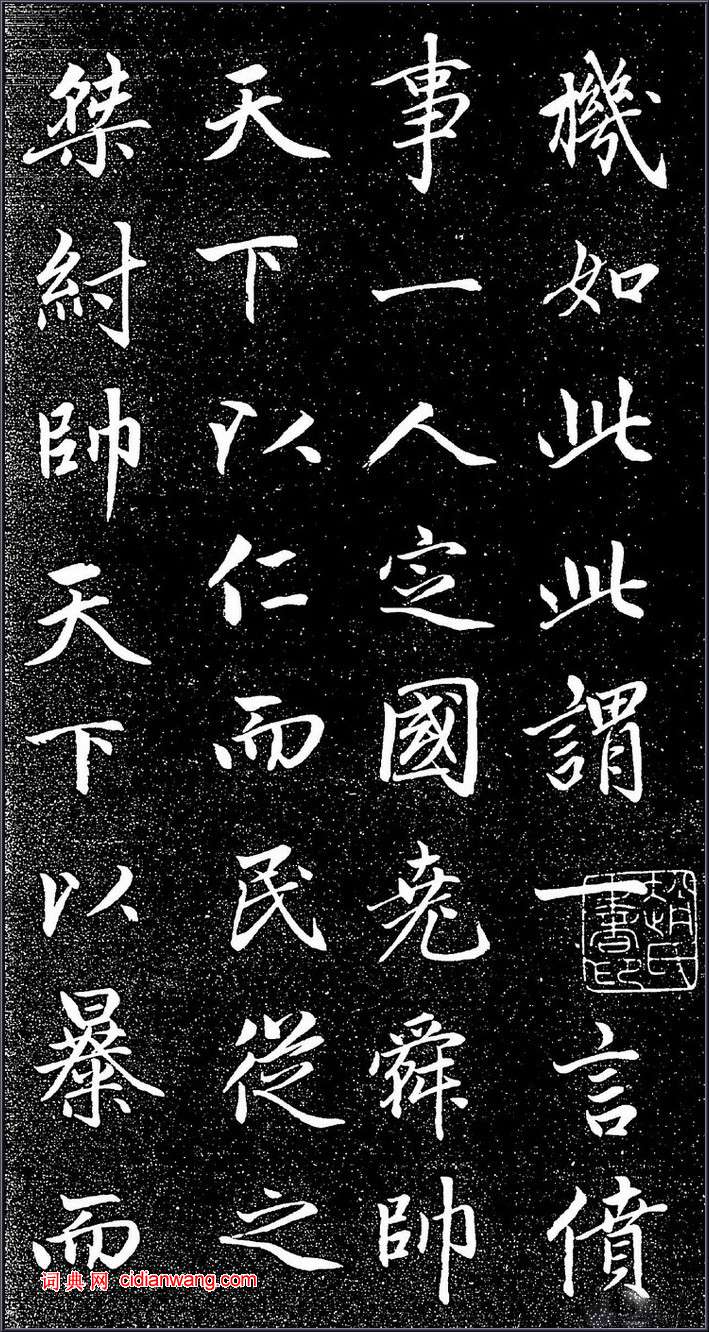 機如此此謂一言僨
事一人定國堯舜帥
天下以仁而民從之
桀紂帥天下以暴而
趙氏書印
词典网 cidianwang.com